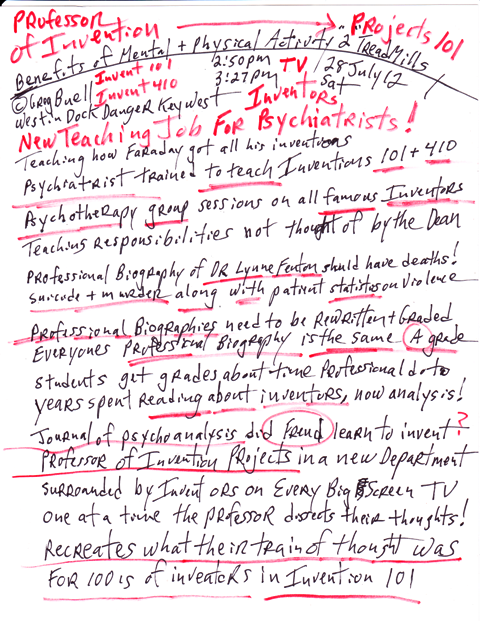 Professor
of Invention → Projects 101
Benefits of Mental + Physical Activity 2 TreadMills
Invent 101 2:50pm TV 28 July 12
© Greg Buell Invent 410 3:27pm Sat
Westin Dock Danger Key West Inventors
New Teaching Job For Psychiatrists!
Teaching how Faraday got all his inventions
Psychiatrist trained to teach Inventions 101 + 410
Psychotherapy group sessions on all famous Inventors
Teaching Responsibilities not thought of by the Dean
Professional Biography of DR Lynne Fenton should have deaths!
suicude + murder along with patient statistics on violence
Professional Biographies need to be Rewritten + Graded
Everyones Professional Biography is the same A grade
students get grades about time Professional do to
years spent reading about inventors, now analysis!
Journal of psychoanalysis did Freud learn to invent?
Professor of Invention Projects in a new Department
surrounded by Inventors on Every Big Screen TV
one at a time the professor disects their thoughts!
Recreates what their train of thought was
For 100is of inventors in Invention 101